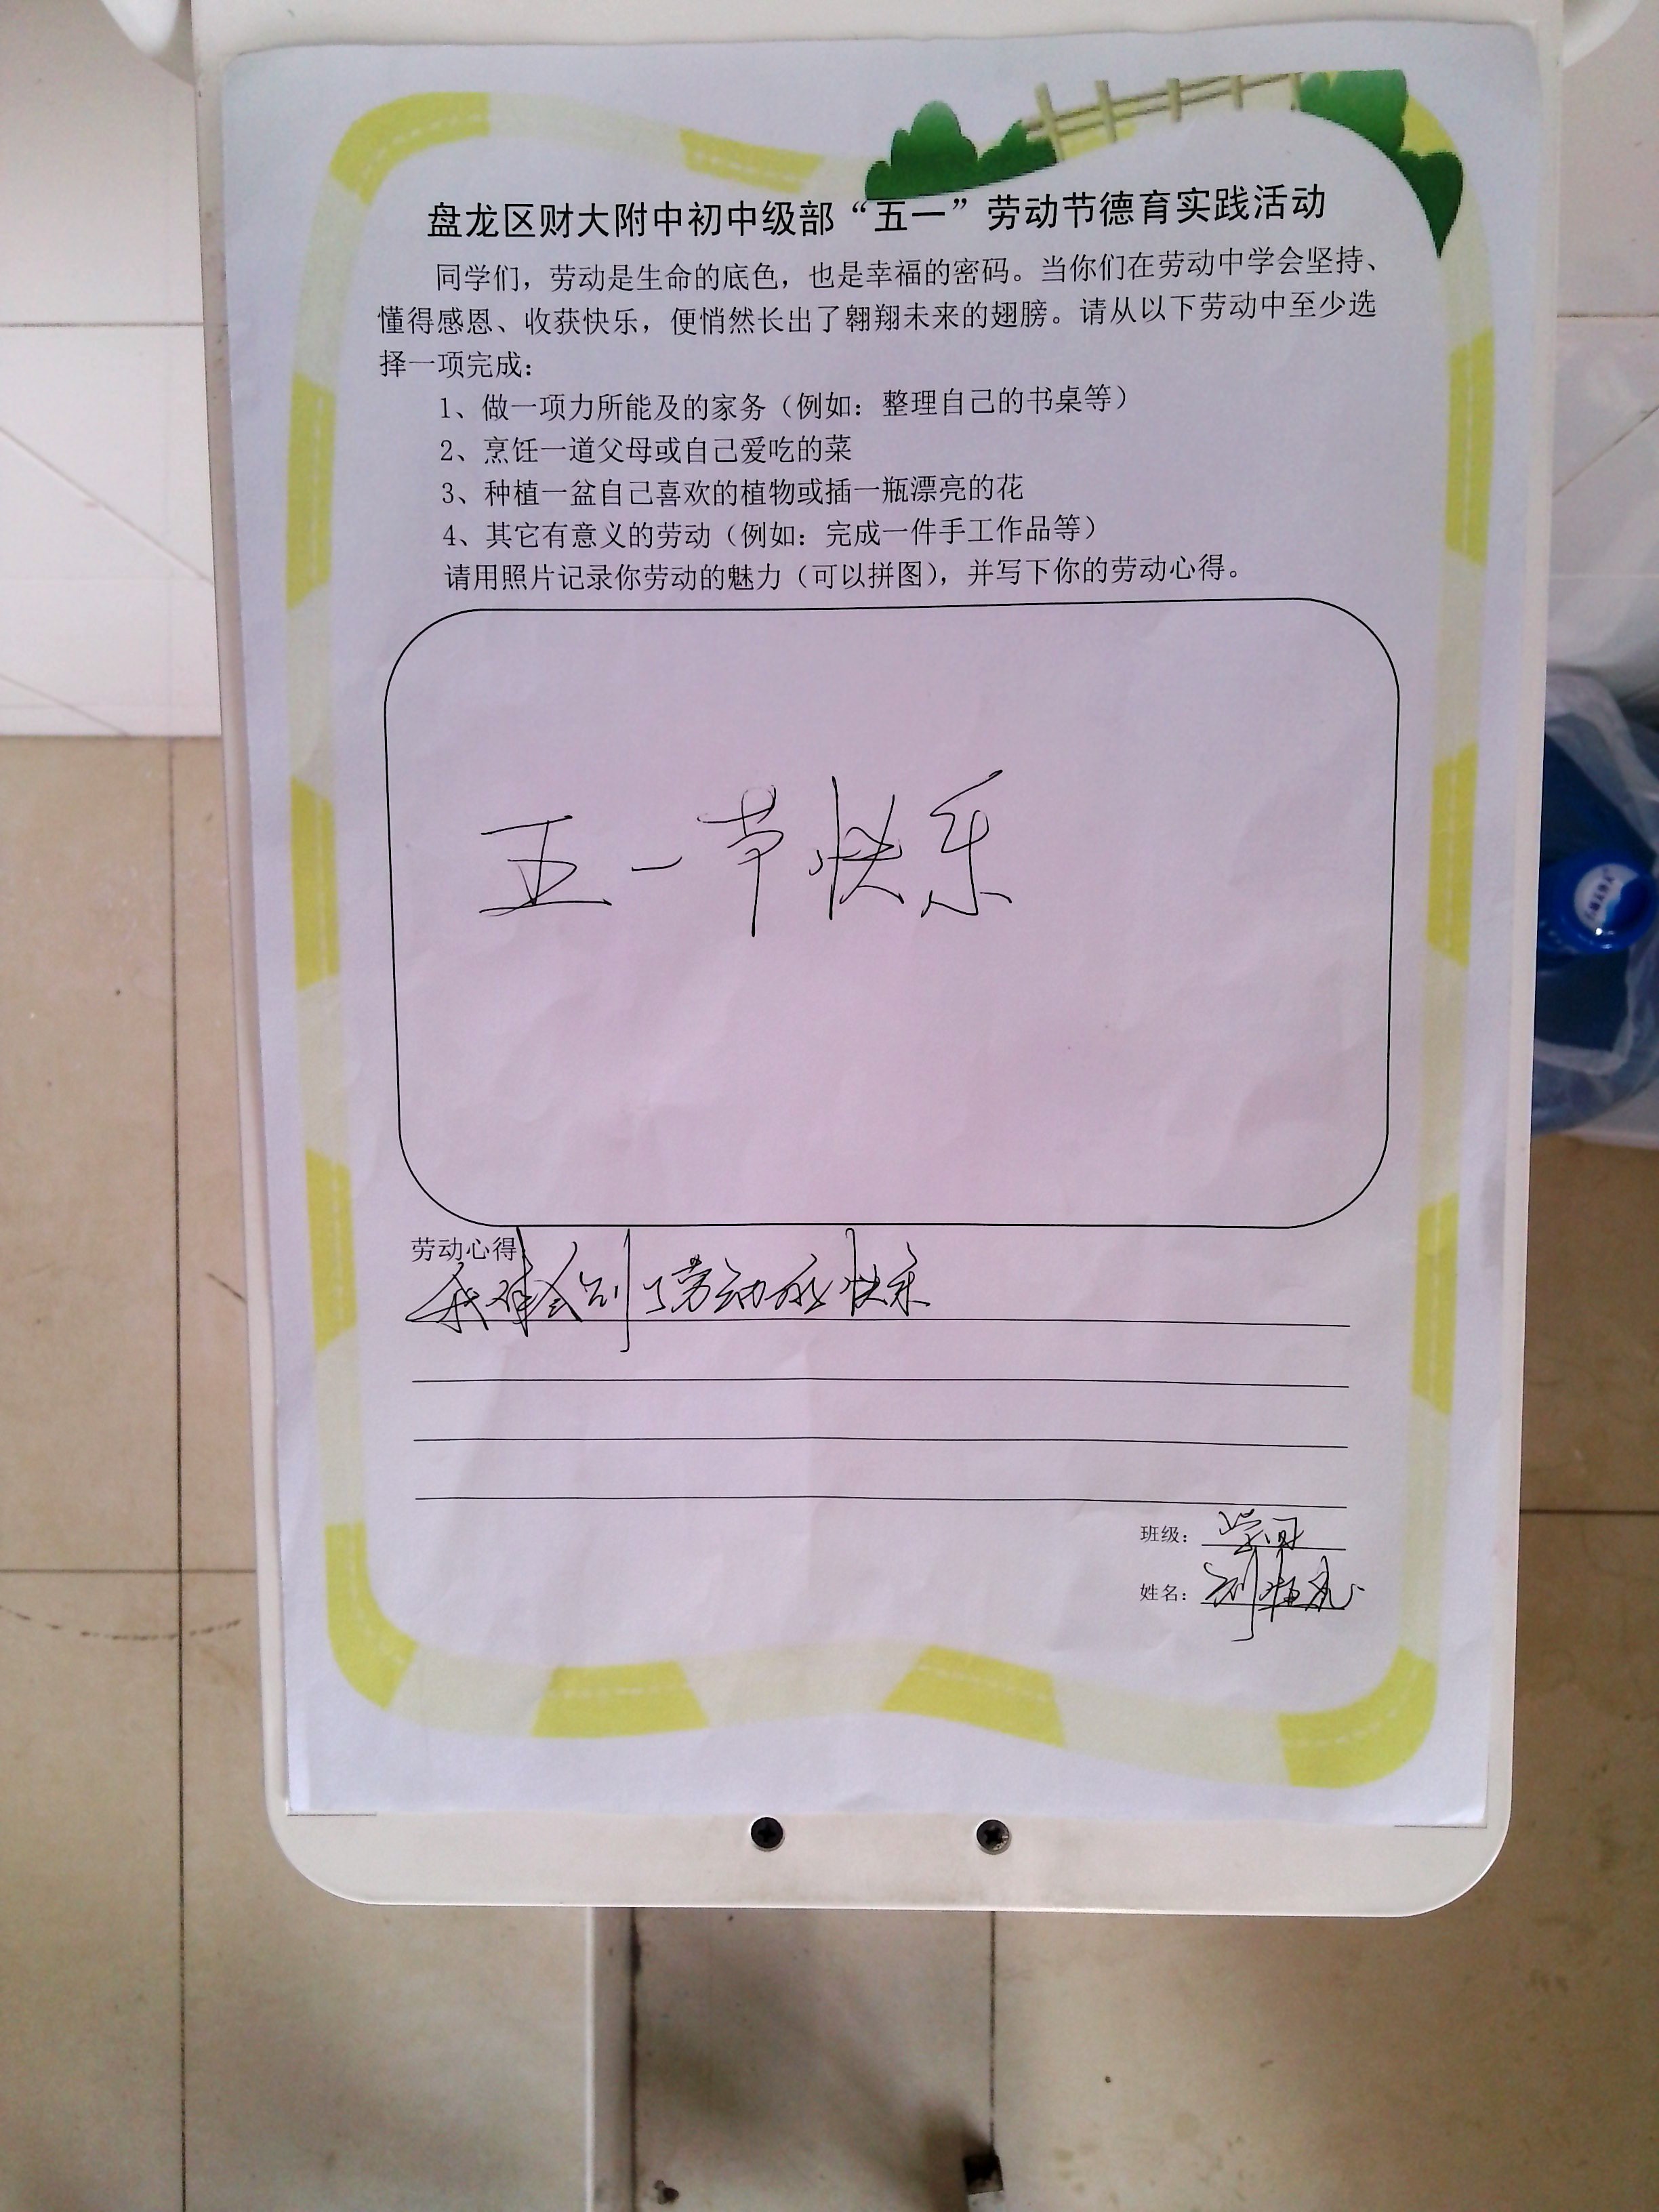 盘龙区财大附中初中级部“五一”劳动节德育实践活动
同学们，劳动是生命的底色，也是幸福的密码。当你们在劳动中学会坚持、
懂得感恩、收获快乐，便悄然长出了翱翔未来的翅膀。请从以下劳动中至少选
择一项完成：
1、做一项力所能及的家务（例如：整理自己的书桌等）
2、烹饪一道父母或自己爱吃的菜
3、种植一盆自己喜欢的植物或插一瓶漂亮的花
4、其它有意义的劳动（例如：完成一件手工作品等）
请用照片记录你劳动的魅力（可以拼图），并写下你的劳动心得。
五一节快乐
劳动心得：
我体会到了劳动的快乐
班级：
姓名：刘